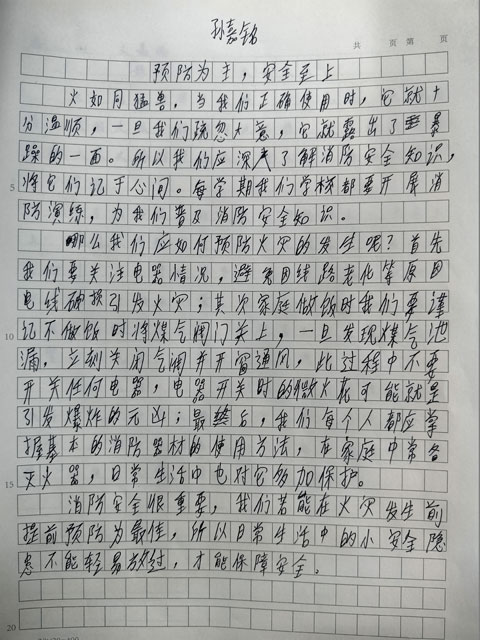 孙嘉铭
共 页 第 页
预防为主，安全至上
火如同猛兽。当我们正确使用时，它就十
分温顺，一旦我们疏忽大意，它就露出了暴
躁的一面。所以我们应深入了解消防安全知识，
5
将它们记于心间。每学期我们学校都要开展消
防演练，为我们普及消防安全知识。
那么我们应如何预防火灾的发生呢？首先
我们要关注电器情况，避免因线路老化等原因
电线破损引发火灾；其次家庭做饭时我们要谨
10
记不做饭时将煤气阀门关上，一旦发现煤气泄
漏，立刻关闭气阀并开窗通风，此过程中不要
开关任何电器，电器开关时的微火花可能就是
引发爆炸的元凶；最后，我们每个人都应掌
握基本的消防器材的使用方法，在家庭中常备
15
灭火器，日常生活中也对它多加保护。
消防安全很重要，我们若能在火灾发生前
提前预防为最佳，所以日常生活中的小安全隐
患不能轻易放过，才能保障安全。
20